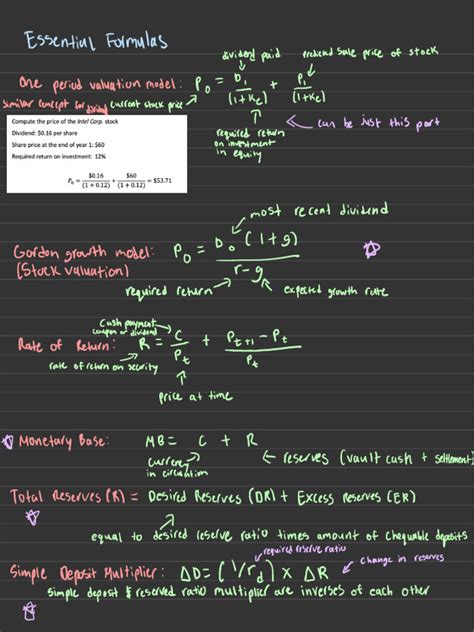 Essential Formulas
dividend paid
predicted sale price of stock
One period valuation model: P₀ = D₁/(1+Ke) + P₁/(1+Ke)
similar concept for dividend
current stock price
can be just this part
required return
on investment
in equity
Compute the price of the Intel Corp. stock
Dividend: $0.16 per share
Share price at the end of year 1: $60
Required return on investment: 12%
P₀ = $0.16/(1 + 0.12) + $60/(1 + 0.12) = $53.71
most recent dividend
Gordon growth model: P₀ = D₀(1+g)/(r-g)
(Stock valuation)
required return
expected growth rate
Cash payment
coupon or dividend
Rate of Return: R = C/Pt + (Pt+1 - Pt)/Pt
rate of return on security
price at time
Monetary Base: MB = C + R
currency
in circulation
reserves (vault cash + settlement)
Total Reserves (R) = Desired Reserves (DR) + Excess Reserves (ER)
equal to desired reserve ratio times amount of chequable deposits
required reserve ratio
change in reserves
Simple Deposit Multiplier: ΔD = (1/rd) × ΔR
simple deposit & reserved ratio multiplier are inverses of each other